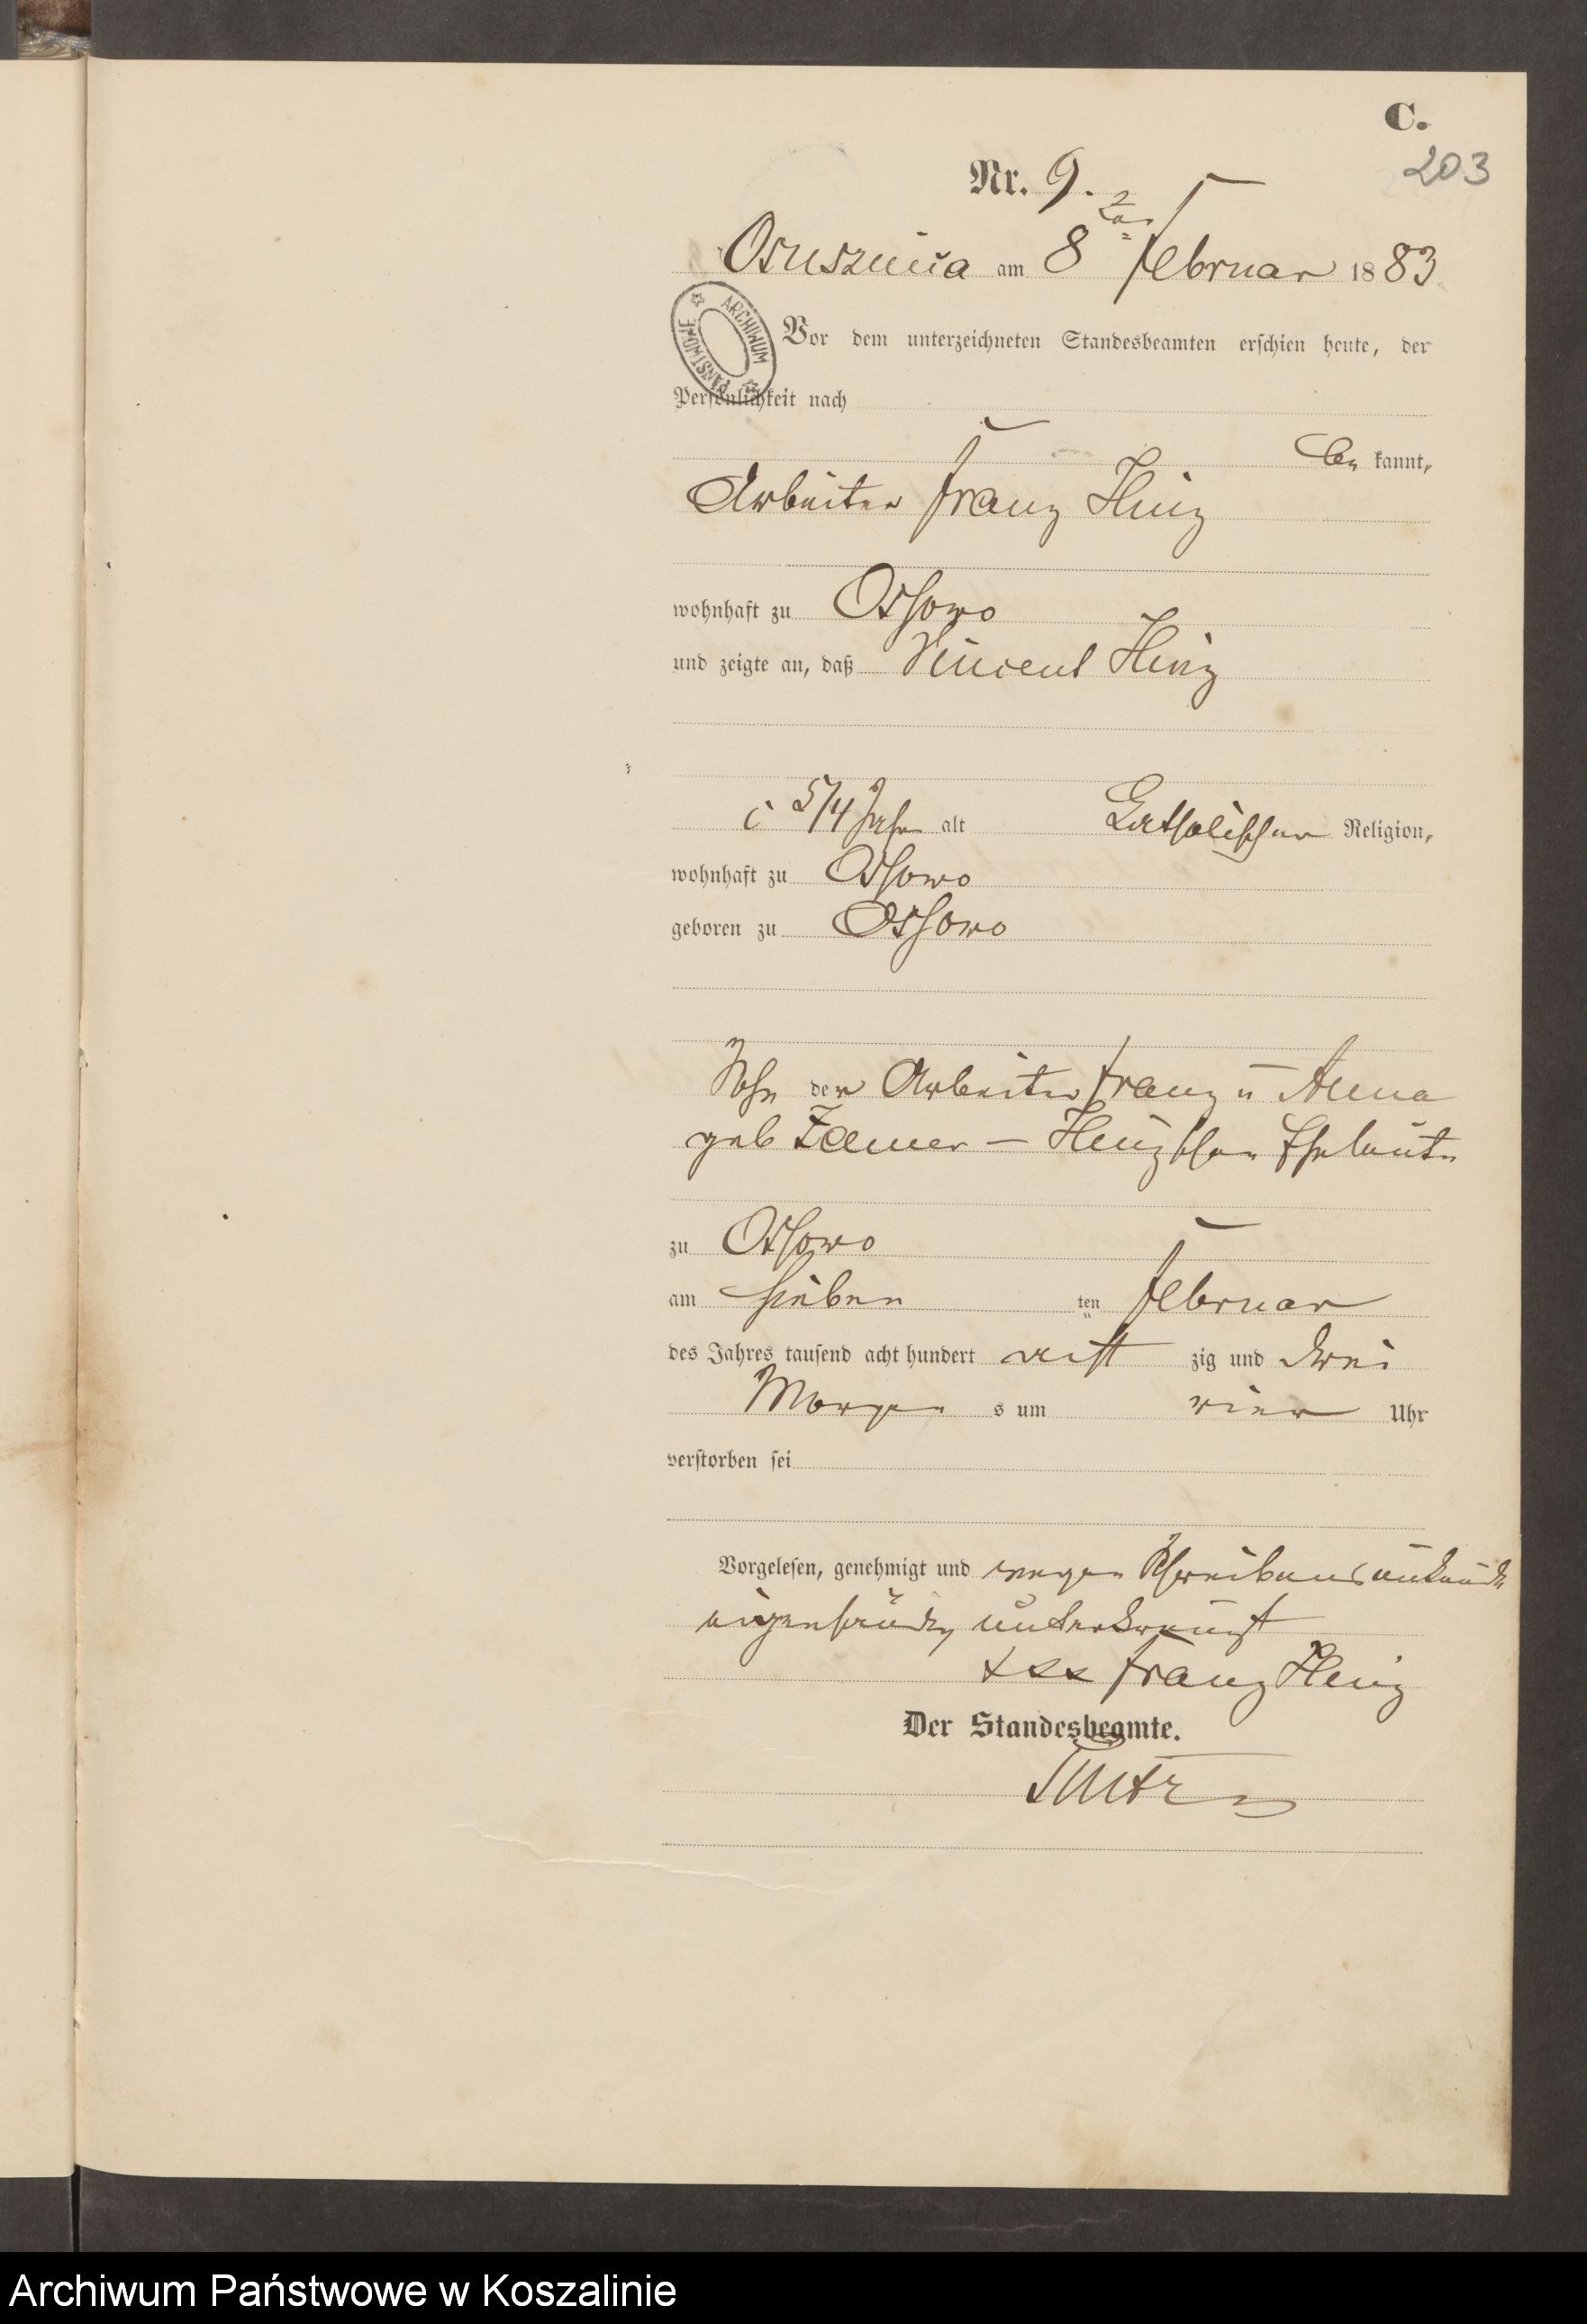 C.
203
Nr. 9.
Osusznica am 8ten Februar 1883
ARCHIWUM PAŃSTWOWE
Vor dem unterzeichneten Standesbeamten erschien heute, der
Persönlichkeit nach
be kannt,
Arbeiter Franz Hinz
wohnhaft zu Ossowo
und zeigte an, daß Vincent Hinz
5/4 Jahr alt Katholischer Religion,
wohnhaft zu Ossowo
geboren zu Ossowo
Sohn der Arbeiter Franz u Anna
geb - Hinzschen Eheleute
zu Ossowo
am sieben ten Februar
des Jahres tausend acht hundert acht zig und drei
Morgen s um vier Uhr
verstorben sei
Vorgelesen, genehmigt und wegen Schreibensunkunde
eigenhändig unterkreuzt
xxx Franz Hinz
Der Standesbeamte.
Archiwum Państwowe w Koszalinie